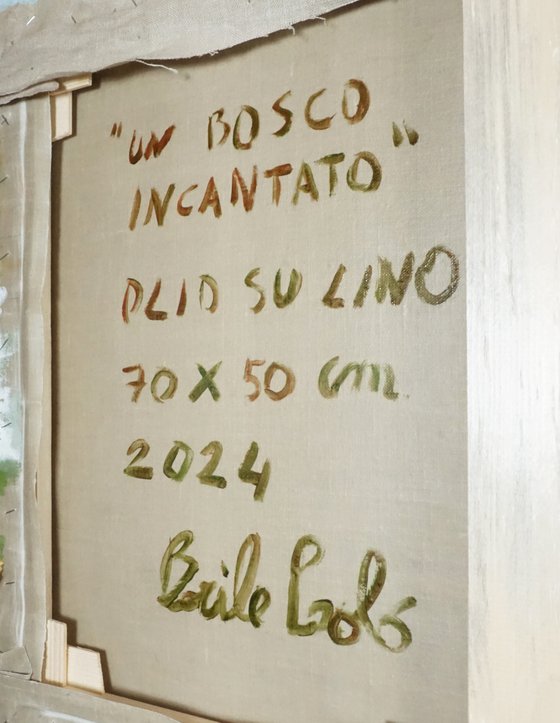 "UN BOSCO
INCANTATO"
OLIO SU LINO
70 X 50 cm.
2024